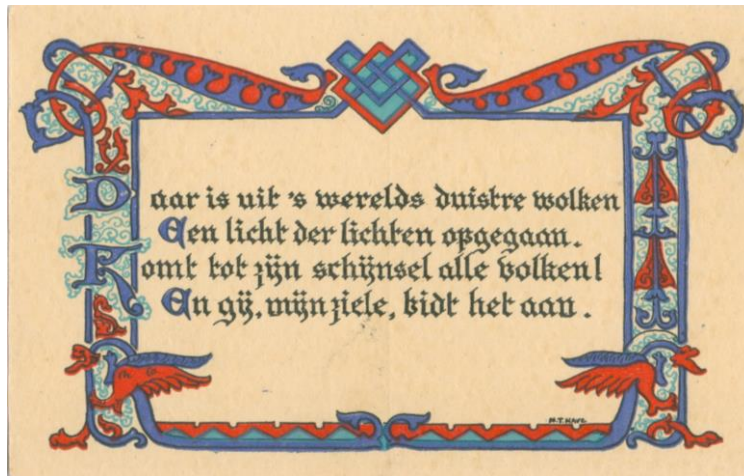 Daar is uit 's werelds duistre wolken
Een licht der lichten opgegaan.
Komt tot zijn schijnsel alle volken!
En gij, mijn ziele, bidt het aan.